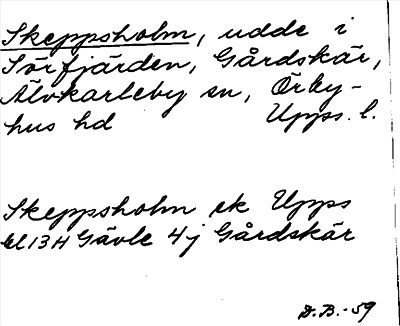 Skeppsholm, udde i
Sörfjärden, Gårdskär,
Älvkarleby sn, Örby-
hus hd Upps. l.
Skeppsholm ek Upps
bl 13H Gävle 4j Gårdskär
D.B.-59